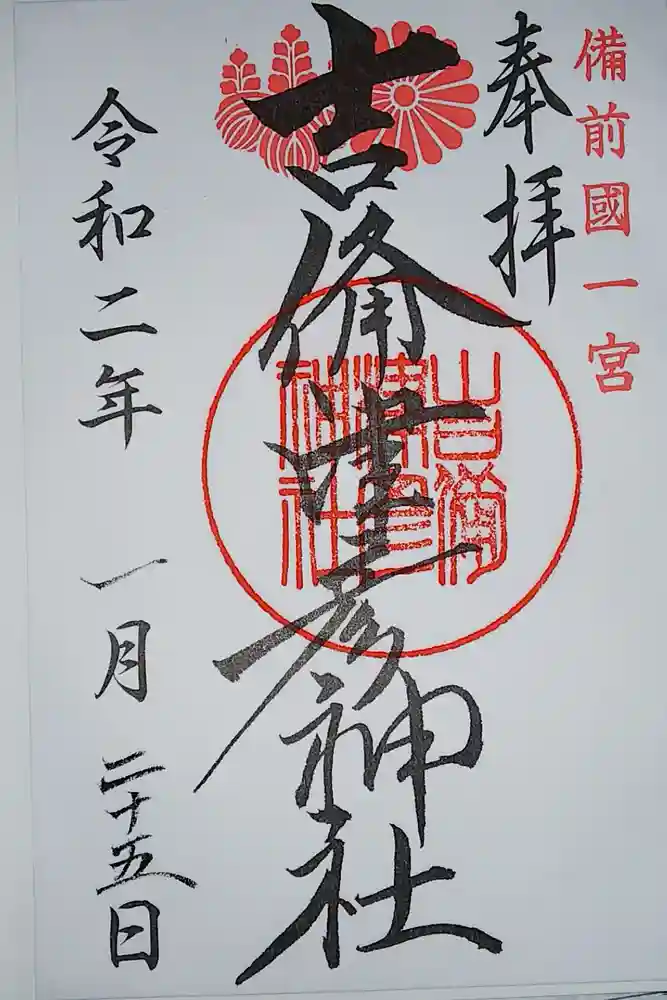 備前國一宮
奉拝
吉備津彦神社
吉備
津彦
神社
令和二年 一月二十五日